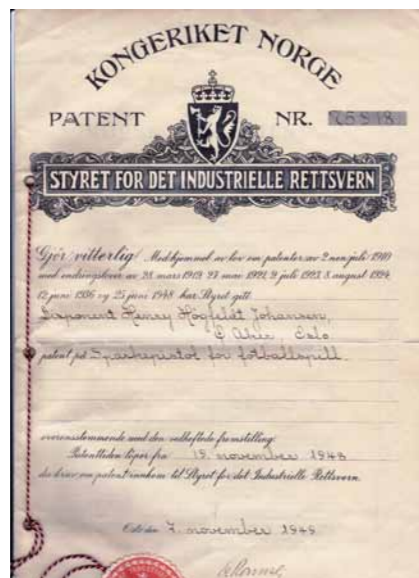 KONGERIKET NORGE
PATENT NR.
STYRET FOR DET INDUSTRIELLE RETTSVERN
Gjør vitterlig: Med hjemmel av lov om patenter av 2 nen juli 1910
med endringslover av 28. mars 1919, 27. mai 1921, 9. juli 1923, 8. august 1924,
12. juni 1936 og 25 juni 1948 har Styret gitt
Disponent Henry Høgfeldt Johansen,
Ø. Aker, Oslo
patent på Sparkepistol for fotballspill.
overensstemmende med den vedheftede fremstilling.
Patenttiden løper fra 19. november 1948
da krav om patent innkom til Styret for det Industrielle Rettsvern.
Oslo den 7. november 1949